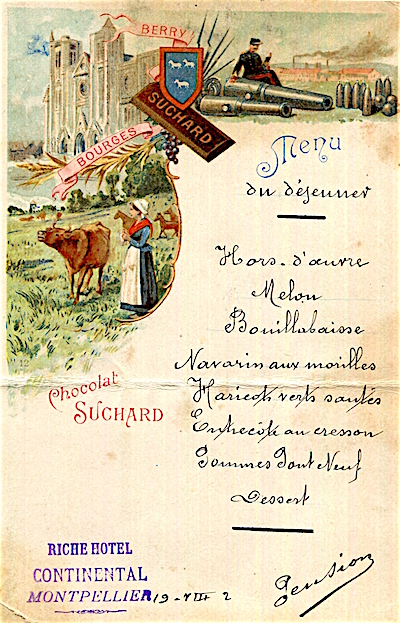 BERRY
SUCHARD
BOURGES
Menu
du déjeuner
Hors-d'œuvre
Melon
Bouillabaisse
Navarin aux morilles
Haricots verts sautés
Entrecôte au cresson
Pommes Pont Neuf
Dessert
Chocolat
SUCHARD
12
RICHE HOTEL
CONTINENTAL
MONTPELLIER
19-VIII 2
Pension